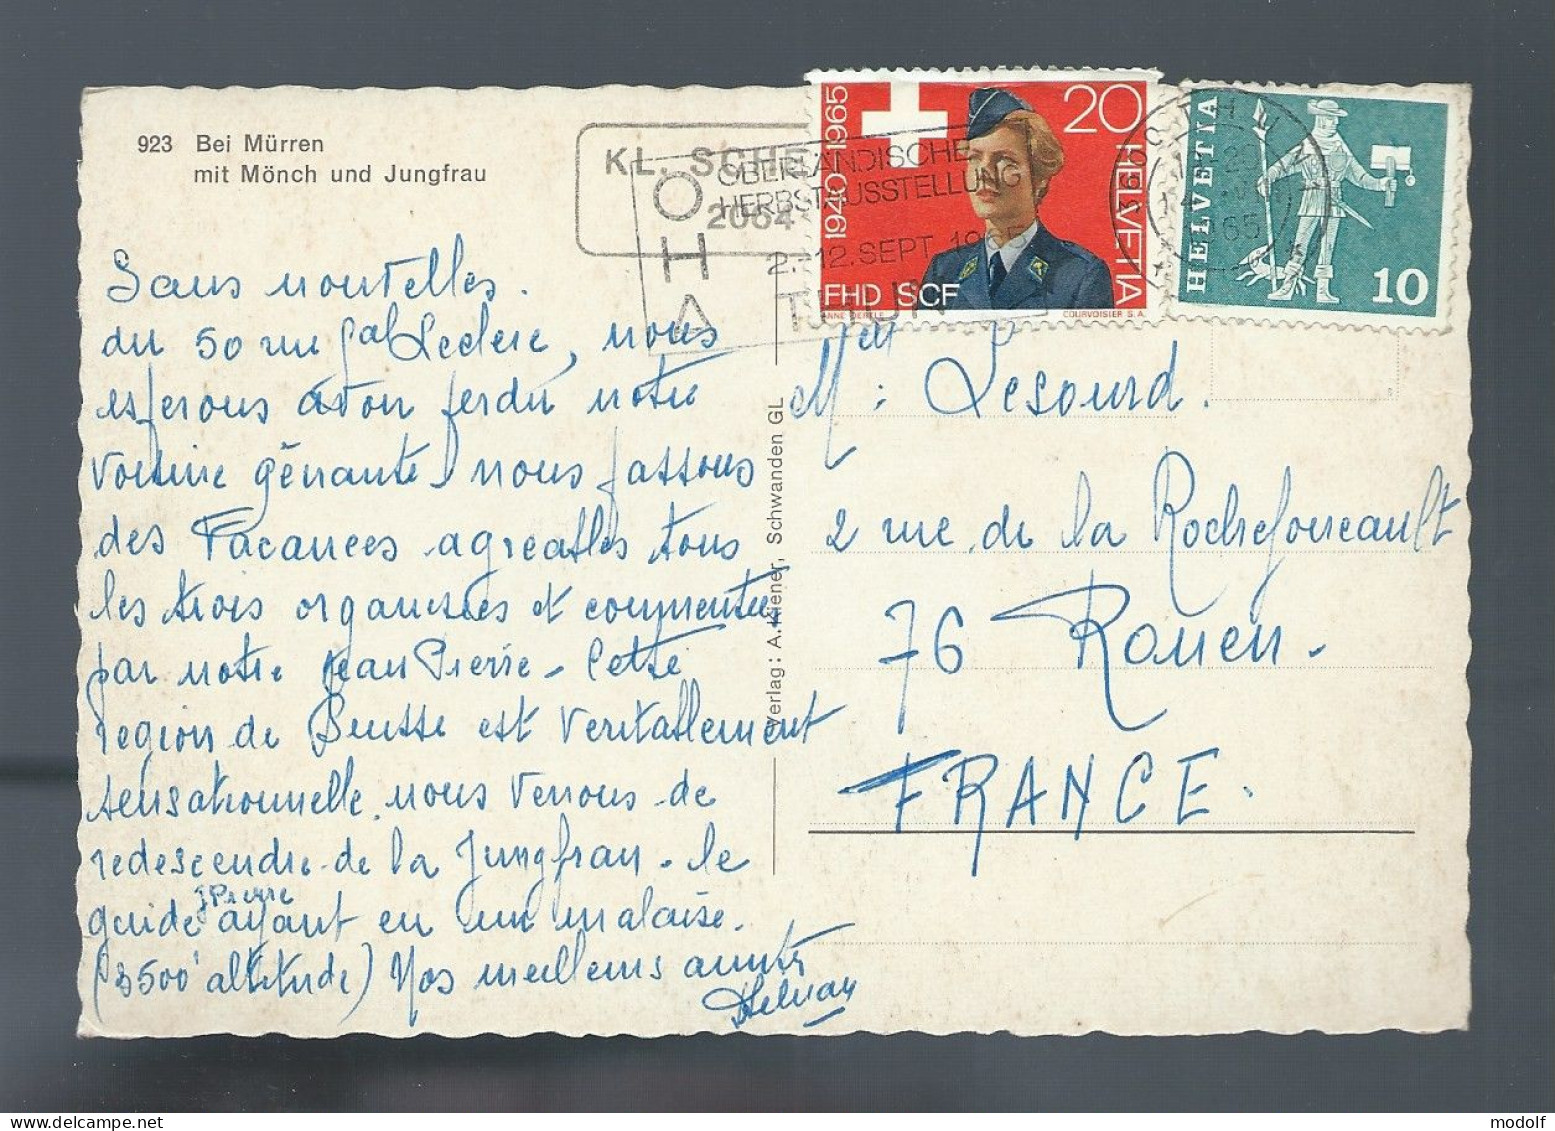 923 Bei Mürren
mit Mönch und Jungfrau
KL. SCHEI
2064
OHA
OBERLÄNDISCHE
HERBSTAUSSTELLUNG
2.-12. SEPT. 1965
THUN
1940-1965
20
HELVETIA
FHD SCF
ANNE OERTLE
COURVOISIER S.A.
THUN 1
HELVETIA
10
Sans nouvelles.
du 50 rue Gal Leclerc, nous
esperons avoir perdu notre
voisine gênante, nous passons
des Vacances agreables tous
les trois organisées et commentées
par notre Jean Pierre - Cette
region de Suisse est veritablement
sensationnelle, nous venons de
redescendre de la Jungfrau - le
guide J Pierre ayant eu un malaise.
(3500 altitude) Nos meilleures amitiés
Verlag: A. Kiener, Schwanden GL
Lesourd.
2 rue de la Rochefoucault
76 Rouen -
FRANCE.
modolf